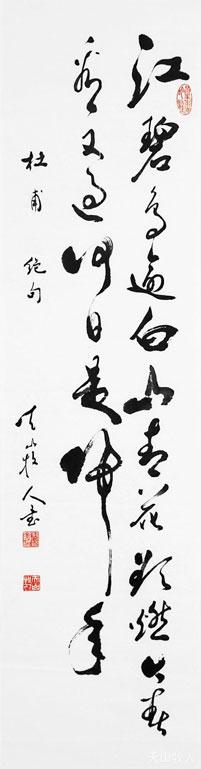 江碧鸟逾白山青花欲燃今春
看又过何日是归年
杜甫 绝句
天山牧人书
天山牧人